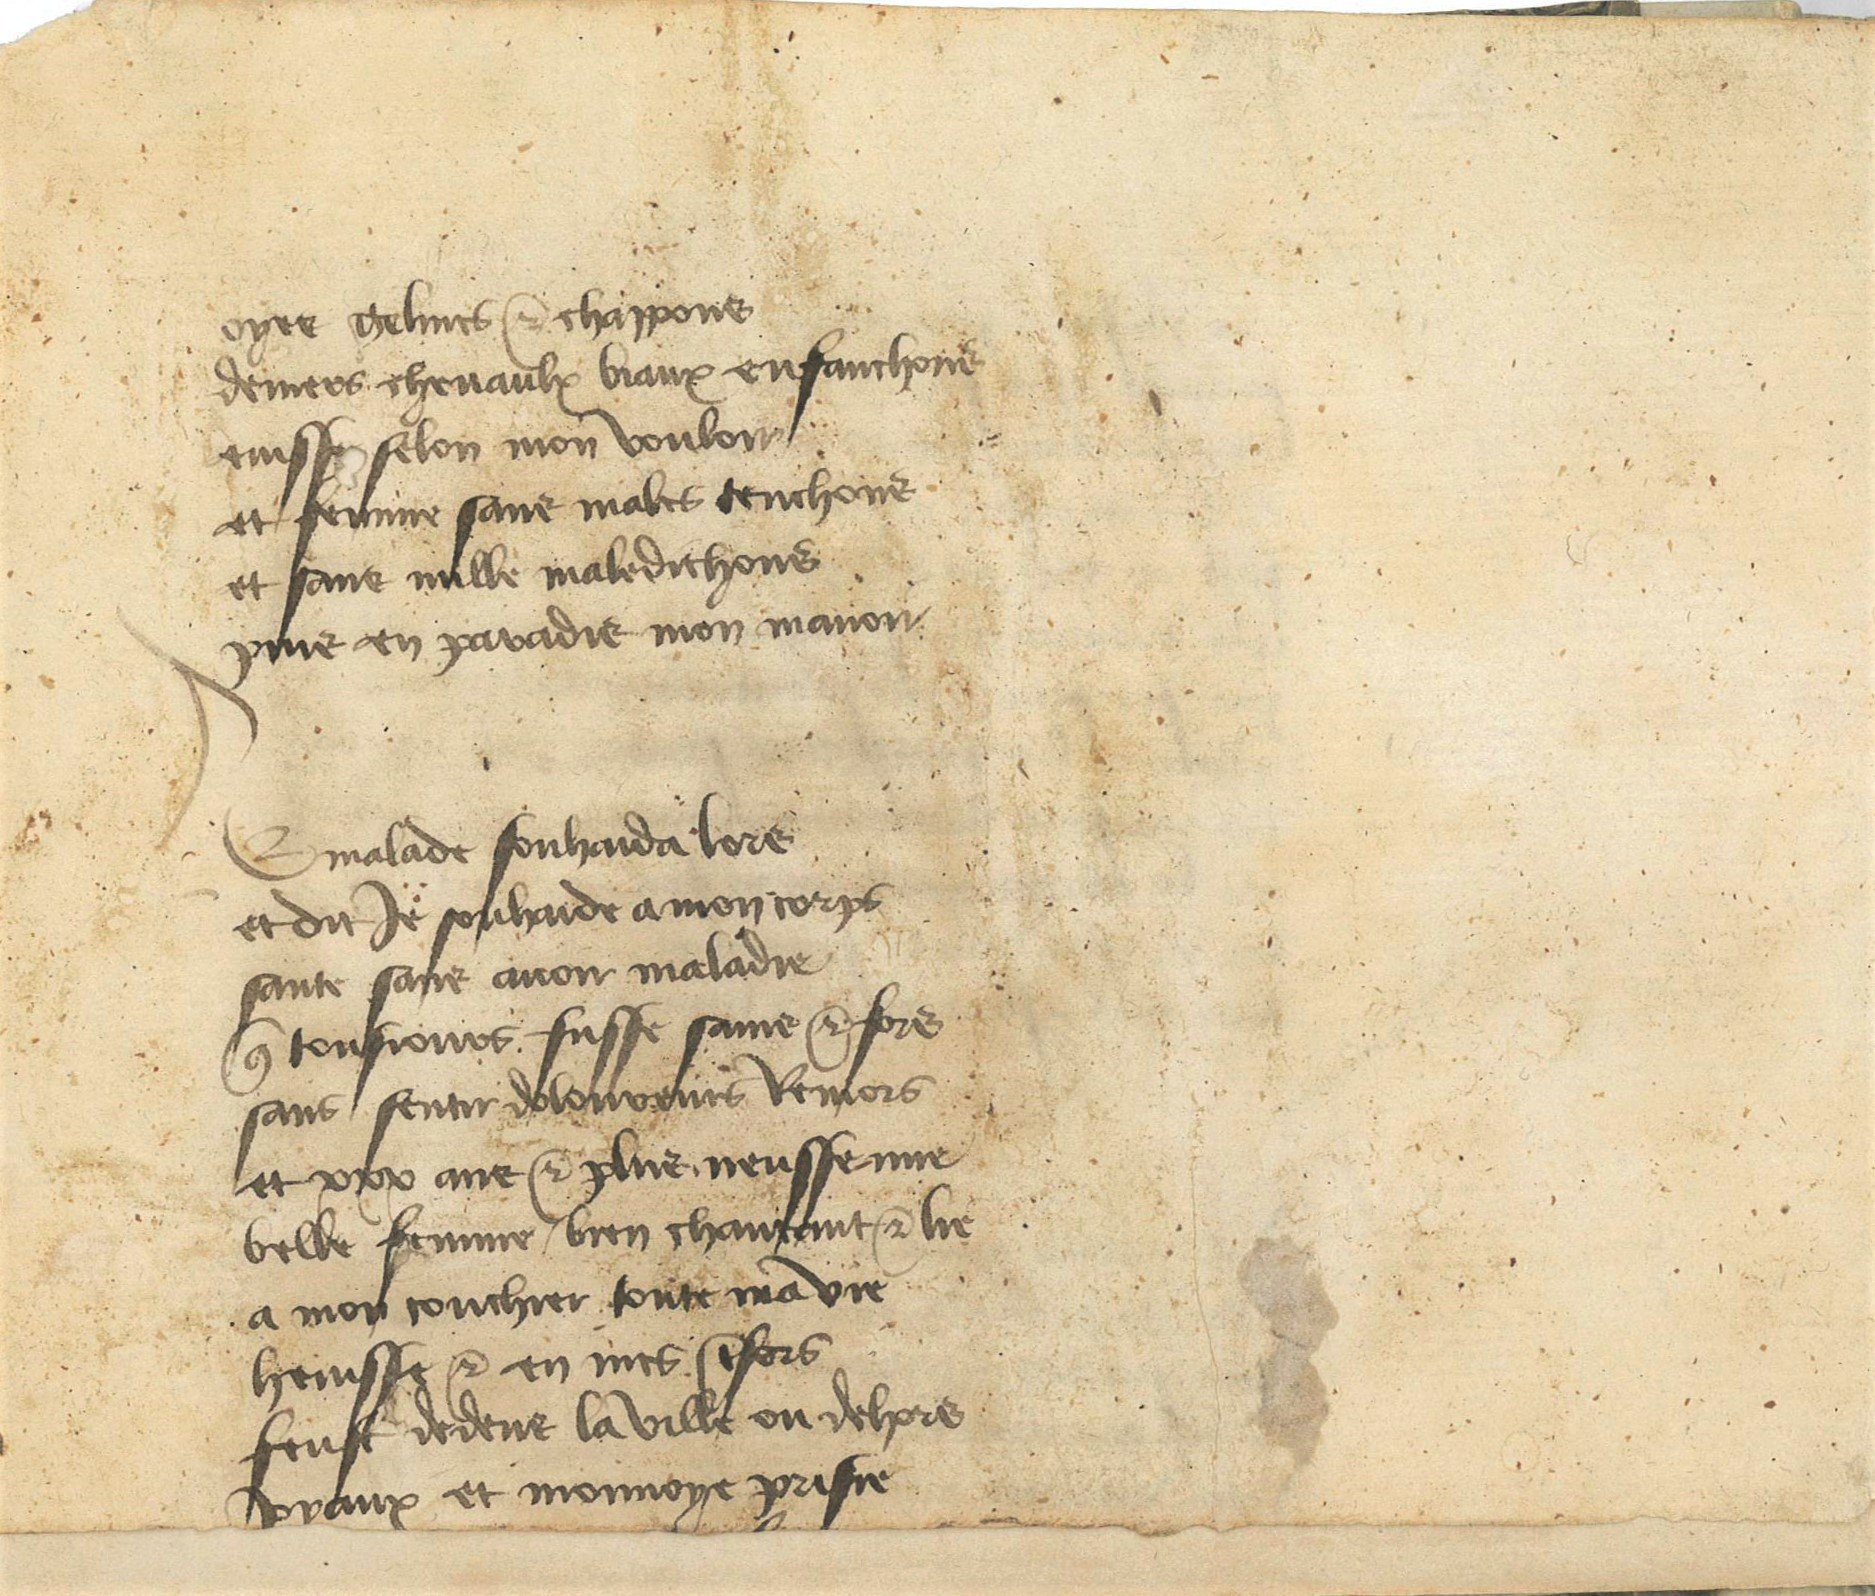 oyes gelines & chappons
deniers chevaulx biaux enfanchons
euisse selon mon vouloir
et femme sans males tenchons
et sans nulle maledichons
puis en paradis mon manoir
E malade souhaida lors
et dit Je souhaide a mon corps
sante sans avoir maladie
& tousiours fusse sains & fors
sans sentir dolereux Remors
et xxx ans & plus neusse mie
belle femme bien chantant & lie
a mon couchier toute ma vie
heuisse & en mes
feust dedens la ville ou dehors
Joyaux et monnoye prisie